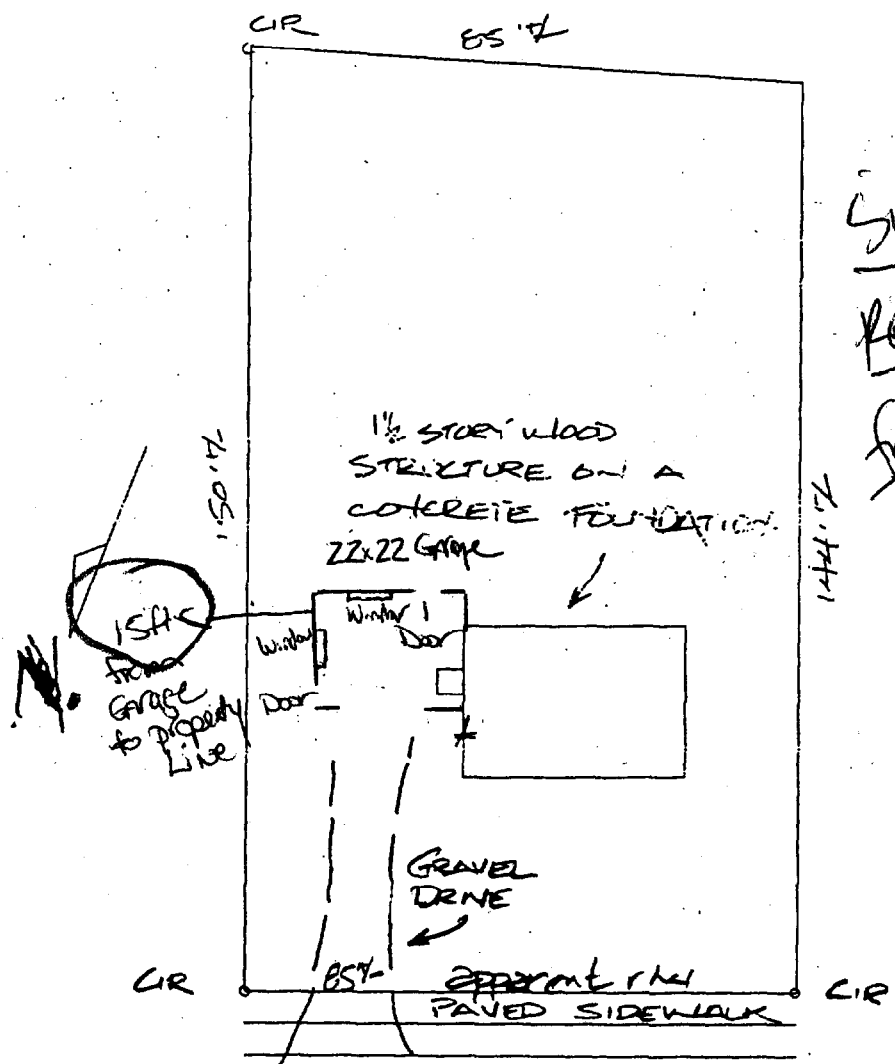 CIR
85'±
150'±
144'±
1½ STORY WOOD
STRUCTURE ON A
CONCRETE FOUNDATION
22x22 Garage
Window
Door
Window
Door
15ft
from
Garage
to Property
Line
N.
GRAVEL
DRIVE
CIR
85'±
apparent r/w
CIR
PAVED SIDEWALK